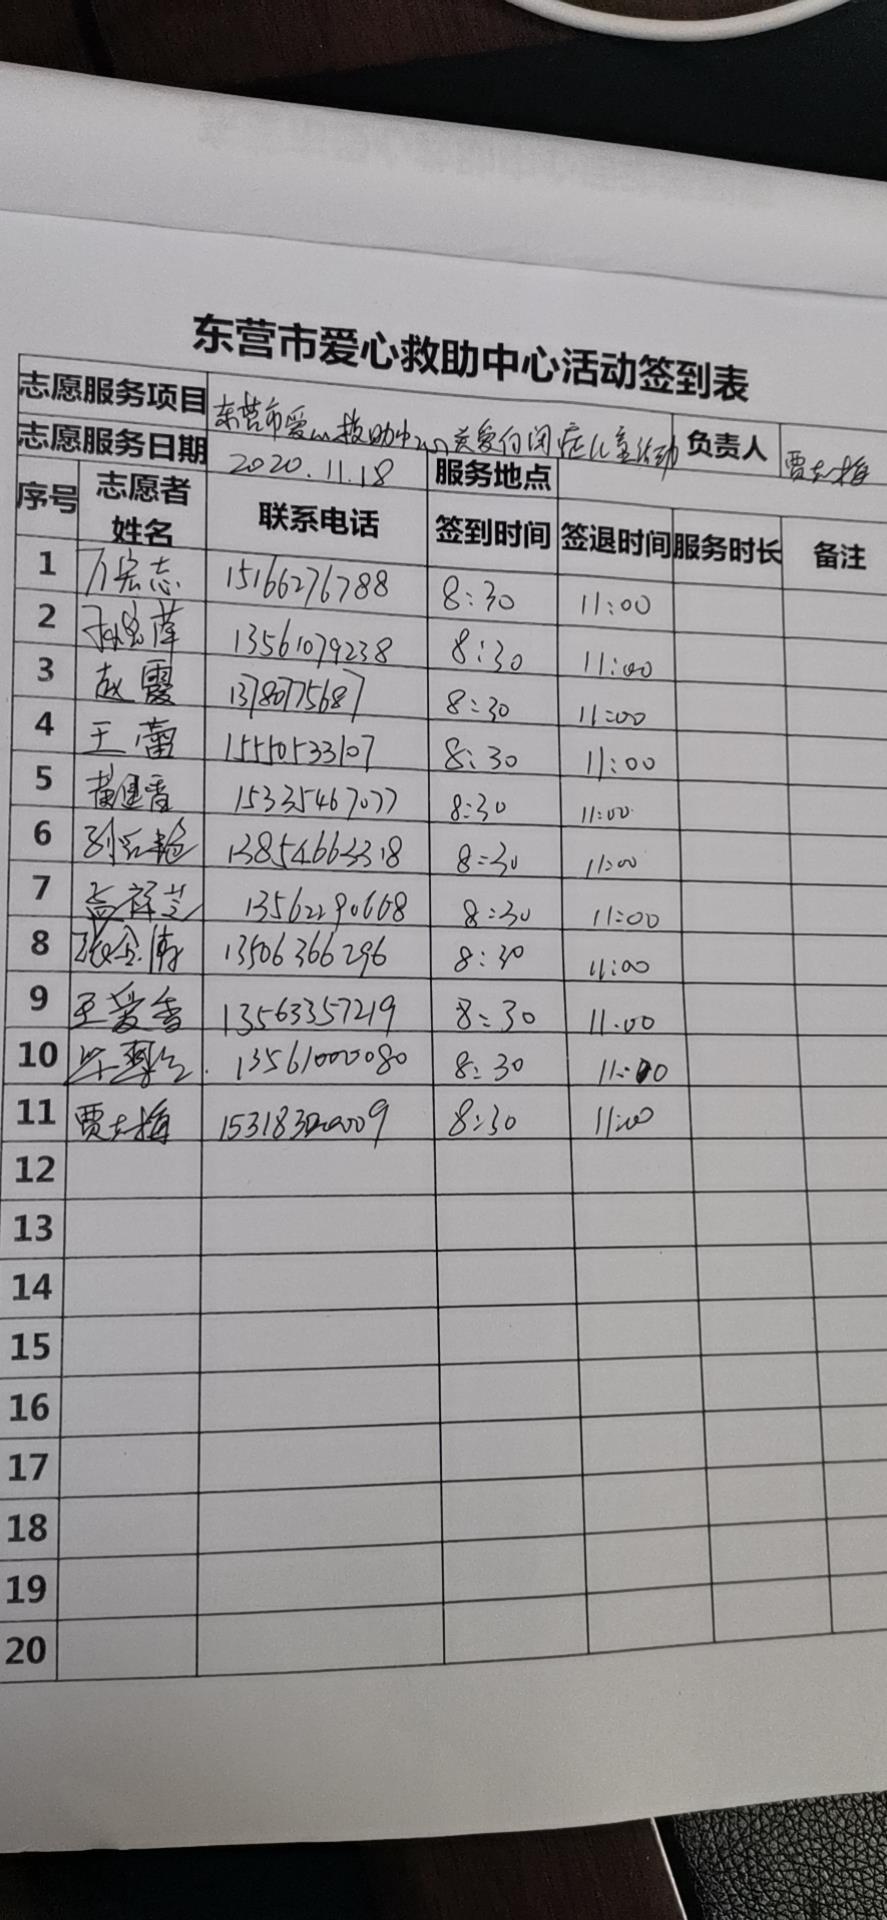 东营市爱心救助中心活动签到表
志愿服务项目 东营市爱心救助中心关爱自闭症儿童活动 负责人 贾志梅
志愿服务日期 2020.11.18 服务地点
序号 志愿者姓名 联系电话 签到时间 签退时间 服务时长 备注
1 万宏志 15166276788 8:30 11:00
2 13561079238 8:30 11:00
3 赵霞 13780775687 8:30 11:00
4 王蕾 15550533107 8:30 11:00
5 黄建香 15335467077 8:30 11:00
6 刘红艳 13854663318 8:30 11:00
7 孟祥芝 13562290668 8:30 11:00
8 13506366296 8:30 11:00
9 王爱香 13563357219 8:30 11:00
10 13561000080 8:30 11:00
11 贾志梅 8:30 11:00
12
13
14
15
16
17
18
19
20